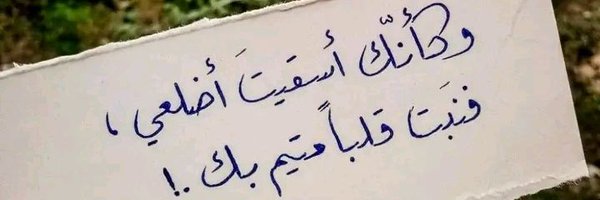 وكأنّك أسقيتَ أضلعي ،
فنبَتا قلباً متيم بك .!